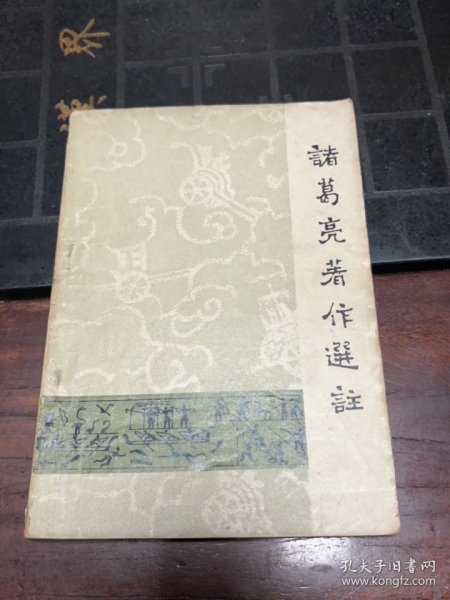 諸葛亮著作選註
漢界
孔夫子旧书网
www.kongfz.com